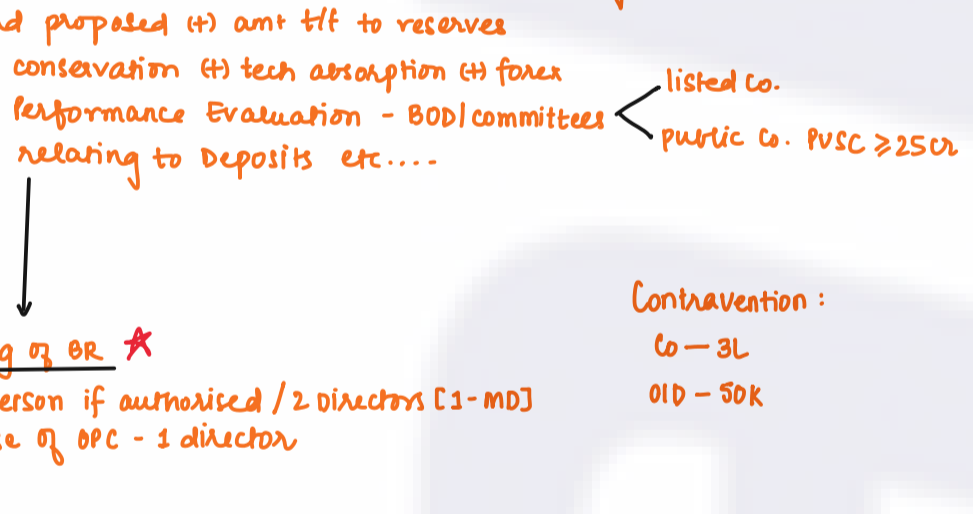 d proposed (+) amt t/f to reserves
conservation (+) tech absorption (+) forex
Performance Evaluation - BOD/committees
listed co.
public co. PUSC ≥ 25 cr
relating to Deposits etc....
Contravention :
Co — 3L
OID — 50K
g of BR
erson if authorised / 2 Directors [1-MD]
se of OPC - 1 director